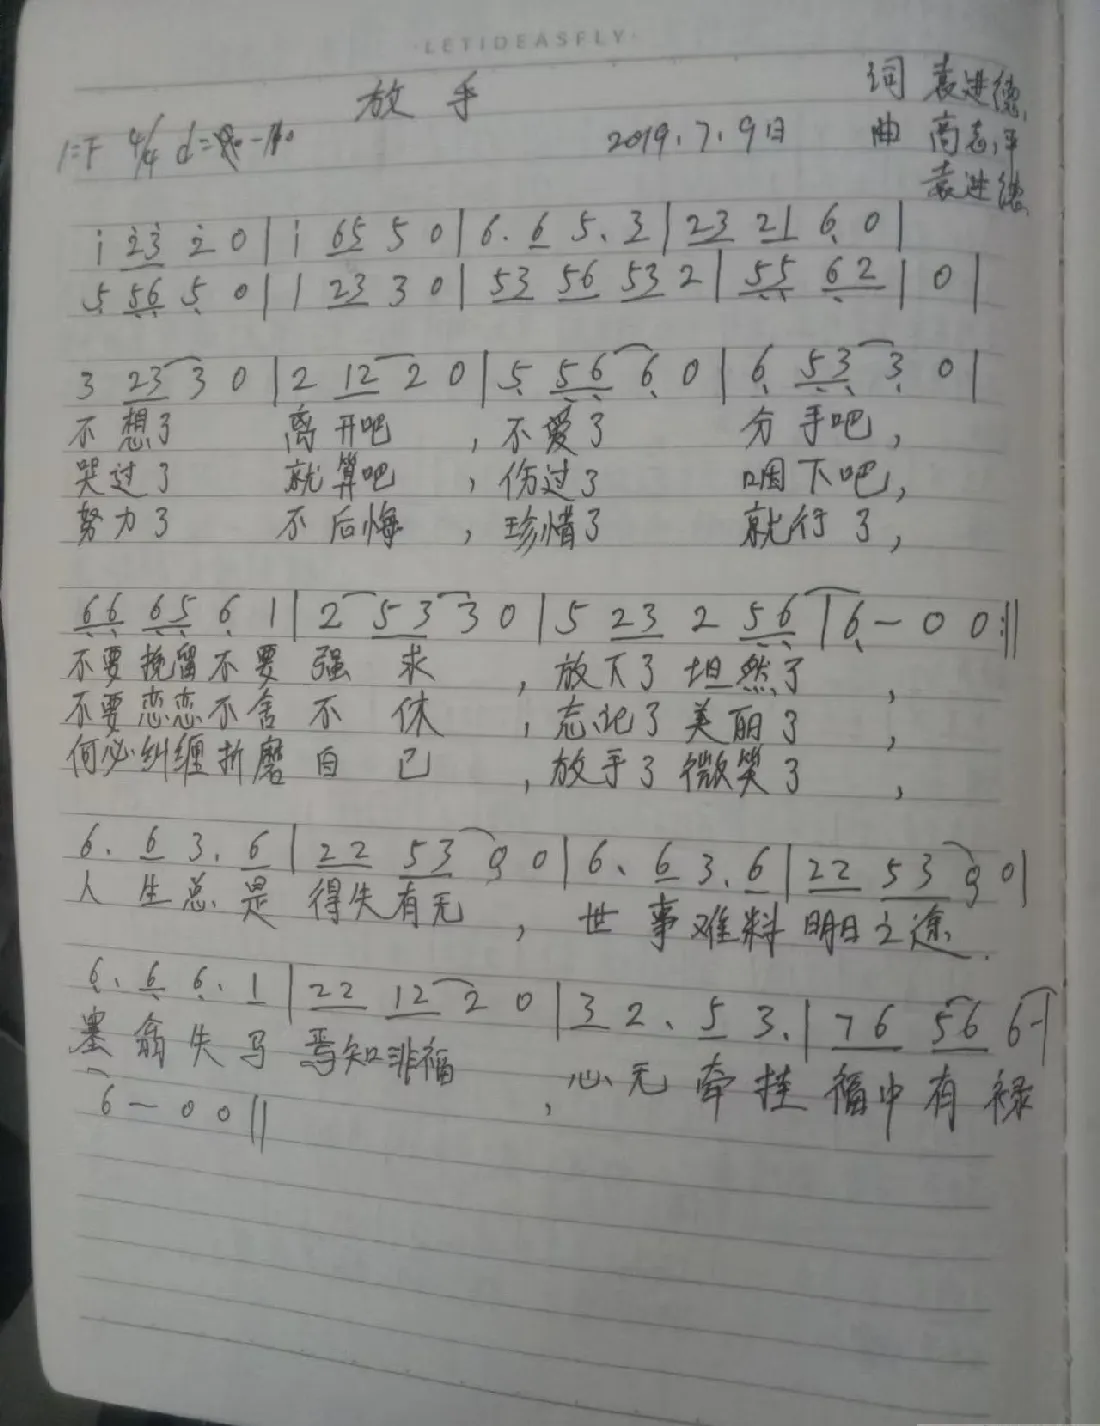 ·LETIDEASFLY·
放手
词 袁进德
1=F 4/4 2019.7.9日 曲 高志平
袁进德
i 23 2 0 | i 65 5 0 | 6. 6 5. 3 | 23 21 6 0 |
5 56 5 0 | 1 23 3 0 | 53 56 53 2 | 55 62 | 0 |
3 23 3 0 | 2 12 2 0 | 5 56 6 0 | 6 53 3 0 |
不想了 离开吧 , 不爱了 分手吧,
哭过了 就算吧 , 伤过了 咽下吧,
努力了 不后悔 , 珍惜了 就行了,
66 65 6 1 | 2 53 3 0 | 5 23 2 56 | 6 — 0 0 :||
不要挽留不要 强求 , 放下了 坦然了 ,
不要恋恋不舍 不休 , 忘记了 美丽了 ,
何必纠缠折磨 自己 , 放手了 微笑了 ,
6. 6 3. 6 | 22 53 0 0 | 6. 6 3. 6 | 22 53 0 0 |
人生总是 得失有无 , 世事难料 明日之途.
6. 6 6. 1 | 22 12 2 0 | 3 2. 5 3. | 76 56 6- |
塞翁失马 焉知非福 , 心无牵挂 福中有禄
6 — 0 0 ||